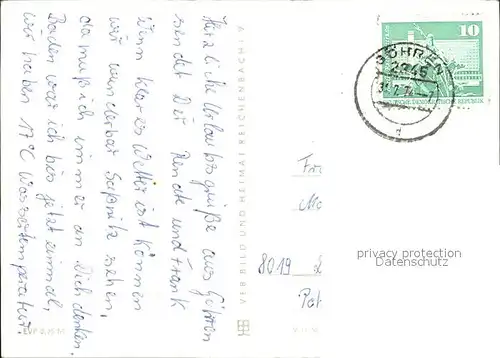 Herzliche Urlaubsgrüße aus Göhren
sendet Dir Renate und Frank
Wenn klares Wetter ist können
wir wunderbar Saßnitz sehen,
da muß ich immer an Dich denken.
Baden war ich bis jetzt einmal,
wir haben 17°C Wassertemperatur.
VEB BILD UND HEIMAT REICHENBACH
10
GÖHREN
2345
DEUTSCHE DEMOKRATISCHE REPUBLIK
8019
privacy protection
Datenschutz